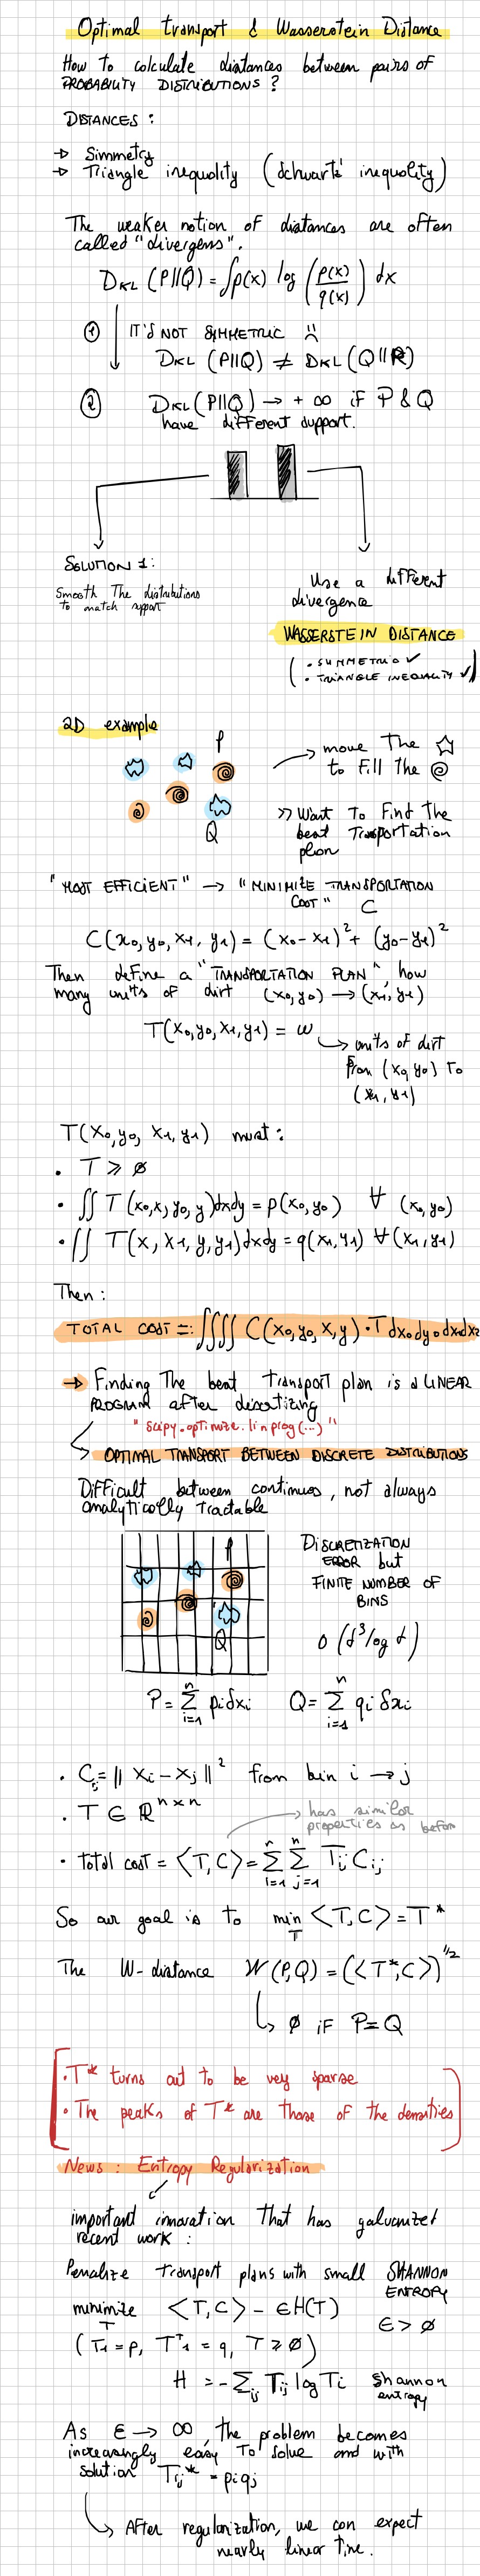 Optimal transport & Wasserstein Distance
How to calculate distances between pairs of
PROBABILITY DISTRIBUTIONS?
DISTANCES:
→ Simmetry
→ Triangle inequality (Schwartz' inequality)
The weaker notion of distances are often
called "divergens".
D_KL (P||Q) = ∫p(x) log (p(x)/q(x)) dx
① IT'S NOT SYMMETRIC ☹
D_KL (P||Q) ≠ D_KL (Q||P)
② D_KL (P||Q) → +∞ if P & Q
have different support.
SOLUTION 1:
Smooth The distributions
to match support
Use a different
divergence
WASSERSTEIN DISTANCE
(• SYMMETRIC ✓
• TRIANGLE INEQUALITY ✓)
2D example
P
Q
→ move The ☆
to Fill the
» Want To Find The
best Trasportation
plan
"MOST EFFICIENT" → "MINIMIZE TRANSPORTATION
COST" C
C(x0,y0,x1,y1) = (x0-x1)² + (y0-y1)²
Then define a "TRANSPORTATION PLAN", how
many units of dirt (x0,y0) → (x1,y1)
T(x0,y0,x1,y1) = w
→ units of dirt
From (x0,y0) To
(x1,y1)
T(x0,y0,x1,y1) must:
• T ≥ ∅
• ∬ T(x0,x,y0,y)dxdy = p(x0,y0) ∀ (x0,y0)
• ∬ T(x,x1,y,y1)dxdy = q(x1,y1) ∀ (x1,y1)
Then:
TOTAL COST =: ∬∬ C(x0,y0,x,y)·T dx0dy0dx1dx2
→ Finding The best transport plan is a LINEAR
PROGRAM after discretizing
"scipy.optimize.linprog(...)"
→ OPTIMAL TRANSPORT BETWEEN DISCRETE DISTRIBUTIONS
Difficult between continuos, not always
analytically tractable
P
Q
DISCRETIZATION
ERROR but
FINITE NUMBER OF
BINS
O(d³log d)
P = Σ_{i=1}^n p_i δx_i Q = Σ_{i=1}^n q_i δx_i
• C_ij = ||x_i - x_j||² from bin i → j
• T ∈ ℝ^{n×n}
→ has similar
properties as before
• total cost = <T,C> = Σ_{i=1}^n Σ_{j=1}^n T_ij C_ij
So our goal is to min_T <T,C> = T*
The W-distance W(P,Q) = (<T*,C>)^{1/2}
↳ ∅ iF P=Q
• T* turns out to be very sparse
• The peaks of T* are those of the densities
News: Entropy Regularization
important innovation That has galvanized
recent work:
Penalize transport plans with small SHANNON
ENTROPY
minimize_T <T,C> - εH(T)
ε > ∅
(T1 = p, T^T1 = q, T ≥ ∅)
H = -Σ_ij T_ij log T_i Shannon
entropy
As ε → ∞, the problem becomes
increasingly easy To solve and with
solution T_ij* = p_i q_j
↳ After regularization, we can expect
nearly linear time.